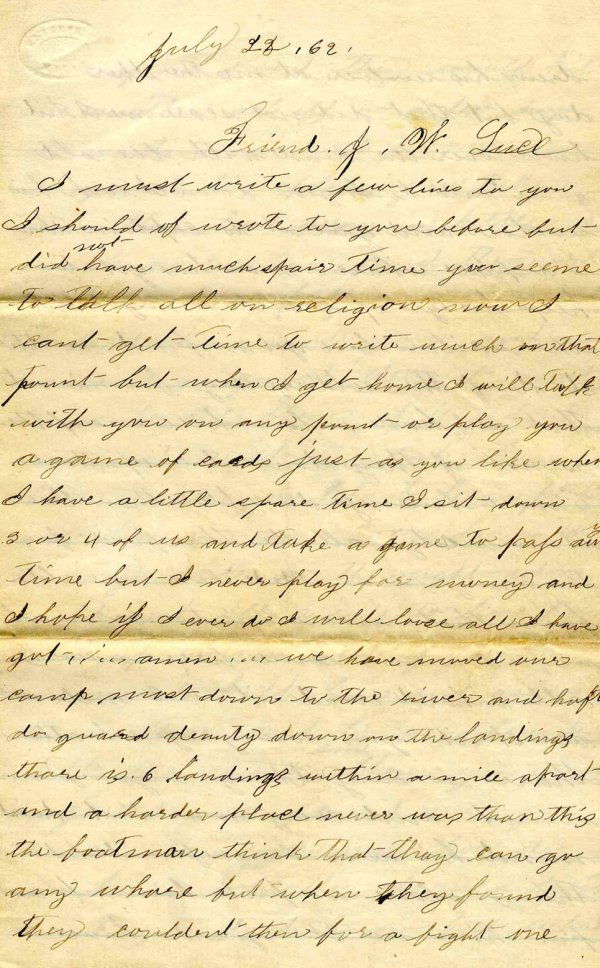 July 22, 62.
Friend. J. W. Luce
I must write a few lines to you
I should of wrote to you before but
did not have much spair time you seeme
to talk all on religion now I
cant get time to write much on that
pount but when I get home I will talk
with you on any pount or play you
a game of cards just as you like when
I have a little spare time I sit down
3 or 4 of us and take a game to pass
time but I never play for money and
I hope if I ever do I will loose all I have
got amen we have moved our
camp most down to the river and haf to
do guard deauty down on the landings
thare is 6 landings within a mile apart
and a harder place never was than this
the boatman think that thay can go
any whare but when they found
they couldent then for a fight one